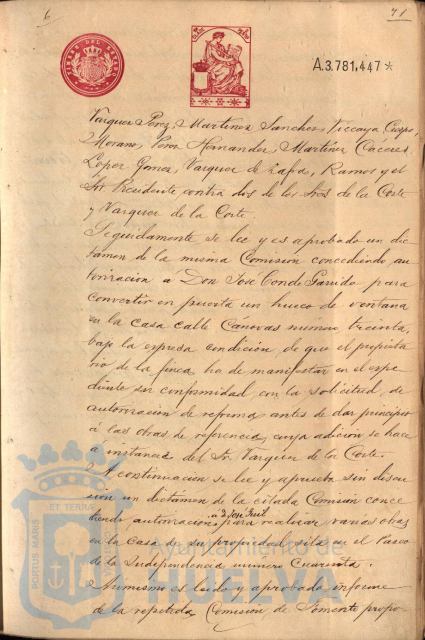 6
71
TIMBRE DEL ESTADO
A.3.781,447*
Vazquez Perez, Martinez Sanchez, Vizcaya, Crespo
Morano, Perez Hernandez, Martin Caceres,
Lopez Gomez, Vazquez de Zafa, Ramos y el
Sr. Presidente contra dos de los Sres de la Corte
y Vazquez de la Corte.
Seguidamente se lee y es aprobado un dic-
tamen de la misma Comision concediendo au-
torizacion á Don José Conde Garrido para
convertir en puerta un hueco de ventana
en la casa calle Cánovas número treinta,
bajo la expresa condición, de que el propieta-
rio de la finca ha de manifestar en el expe-
diente su conformidad, con la solicitud, de
autorizacion de reforma antes de dar principio
á las obras de referencia, cuya adicion se hace
á instancia del Sr. Vazquez de la Corte.
A continuacion se lee y aprueba sin discu-
sion un dictámen de la citada Comisión conce-
diendo autorizacion para realizar varias obras
en la Casa de su propiedad sita en el Paseo
de la Independencia numero Cuarenta.
Asimismo es leido y aprobado informe
de la repetida Comision de Fomento propo-
PORTUS MARIS ET TERRAE
Ayuntamiento de
HUELVA